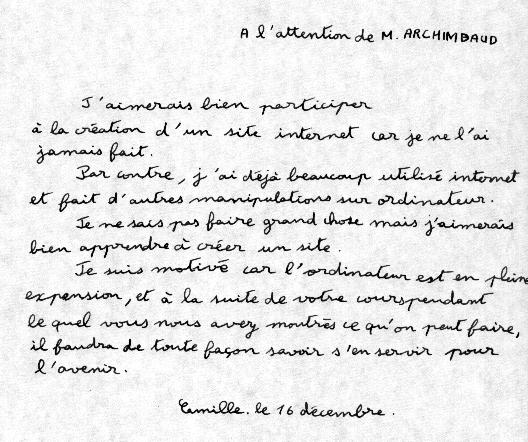 A l'attention de M. ARCHIMBAUD
J'aimerais bien participer
à la création d'un site internet car je ne l'ai
jamais fait.
Par contre, j'ai déjà beaucoup utilisé internet
et fait d'autres manipulations sur ordinateur.
Je ne sais pas faire grand chose mais j'aimerais
bien apprendre à créer un site.
Je suis motivé car l'ordinateur est en pleine
expension, et à la suite de votre courspendant
le quel vous nous avez montrés ce qu'on peut faire,
il faudra de toute façon savoir s'en servir pour
l'avenir.
Camille. le 16 décembre.